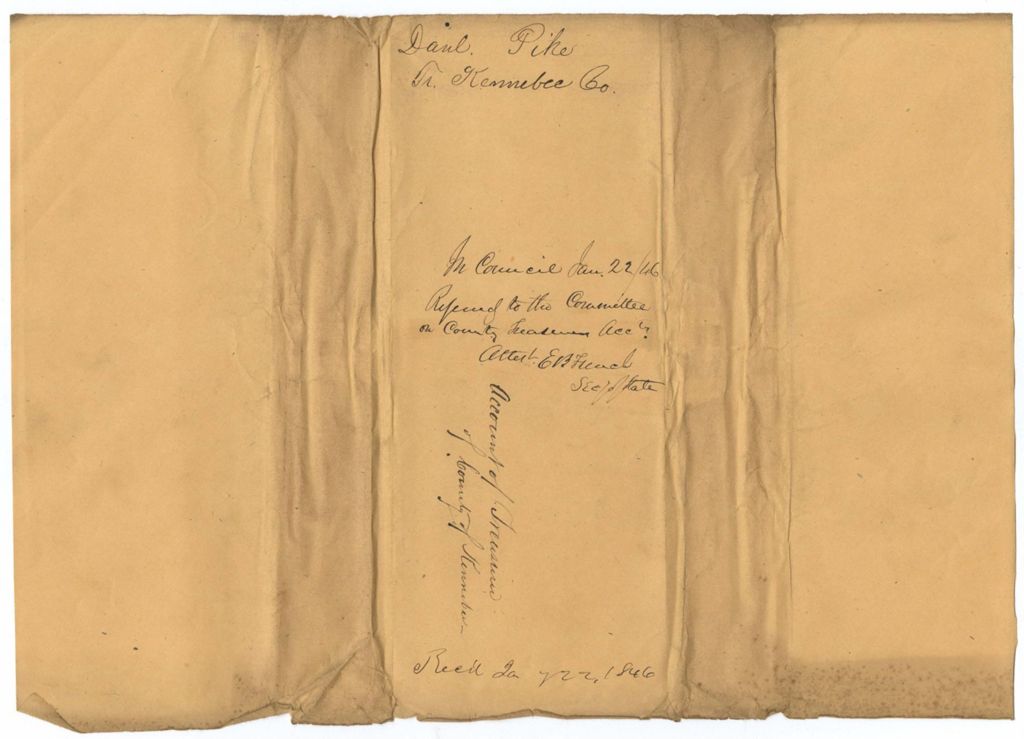 Danl. Pike
Tr. Kennebec Co.
In Council Jan. 22/46
Referred to the Committee
on County Treasurers Accts.
Attest. E B French
Secy of State
Account of Treasurer
of County of Kennebec
Rec'd Jany 22, 1846